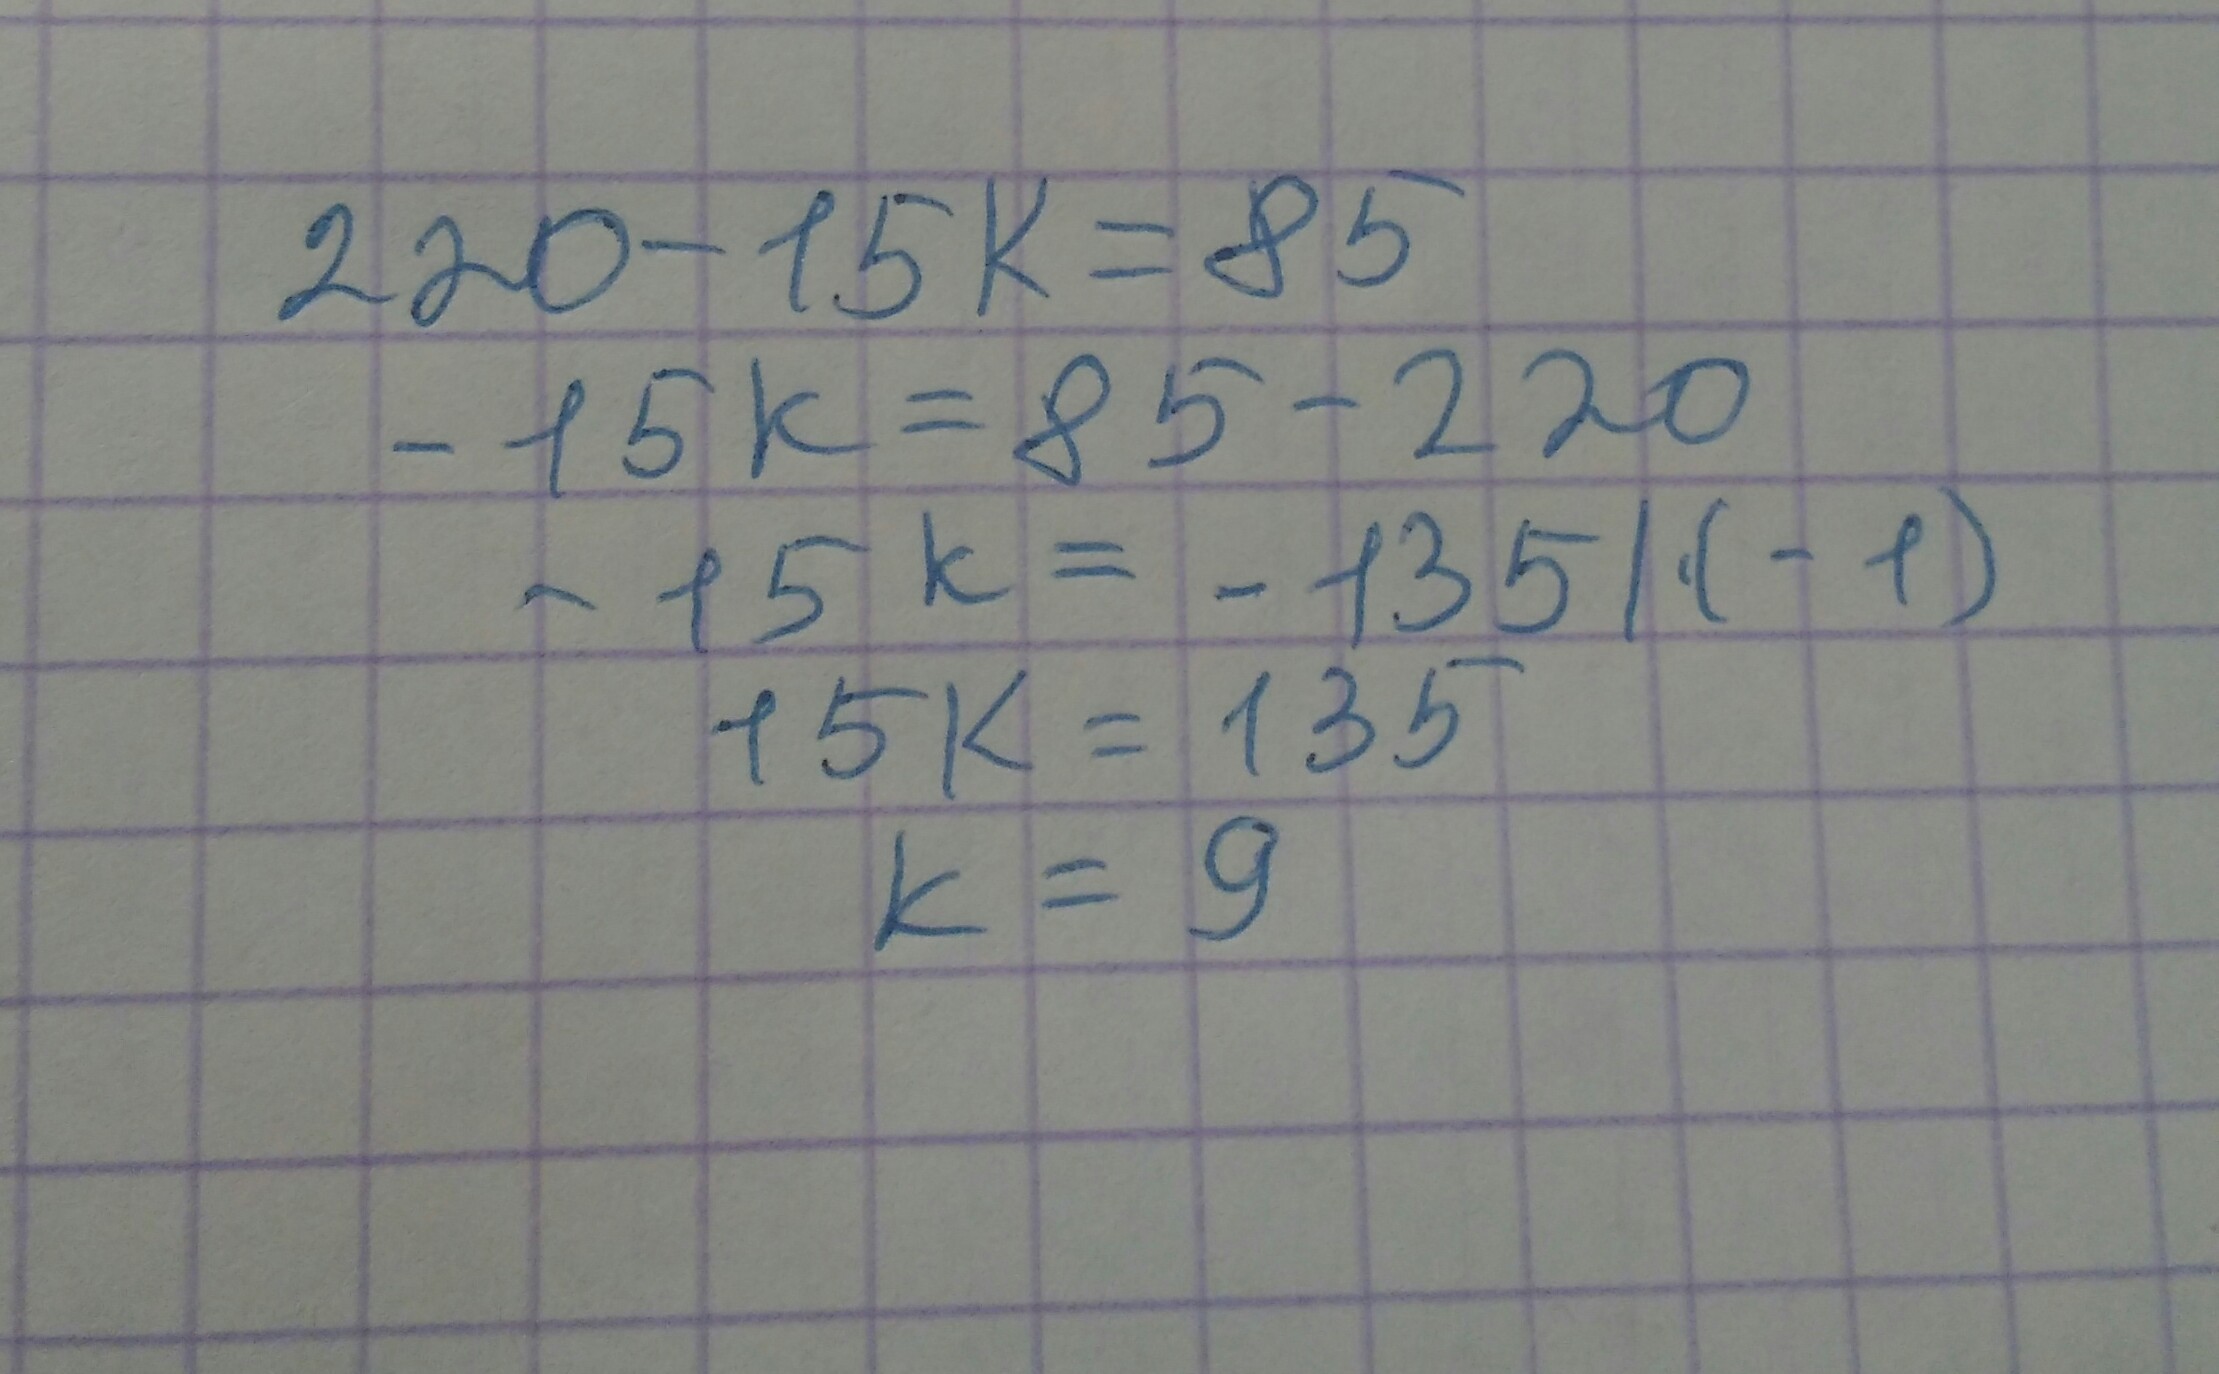 220-15k=85
-15k=85-220
-15k=-135|·(-1)
15k=135
k=9